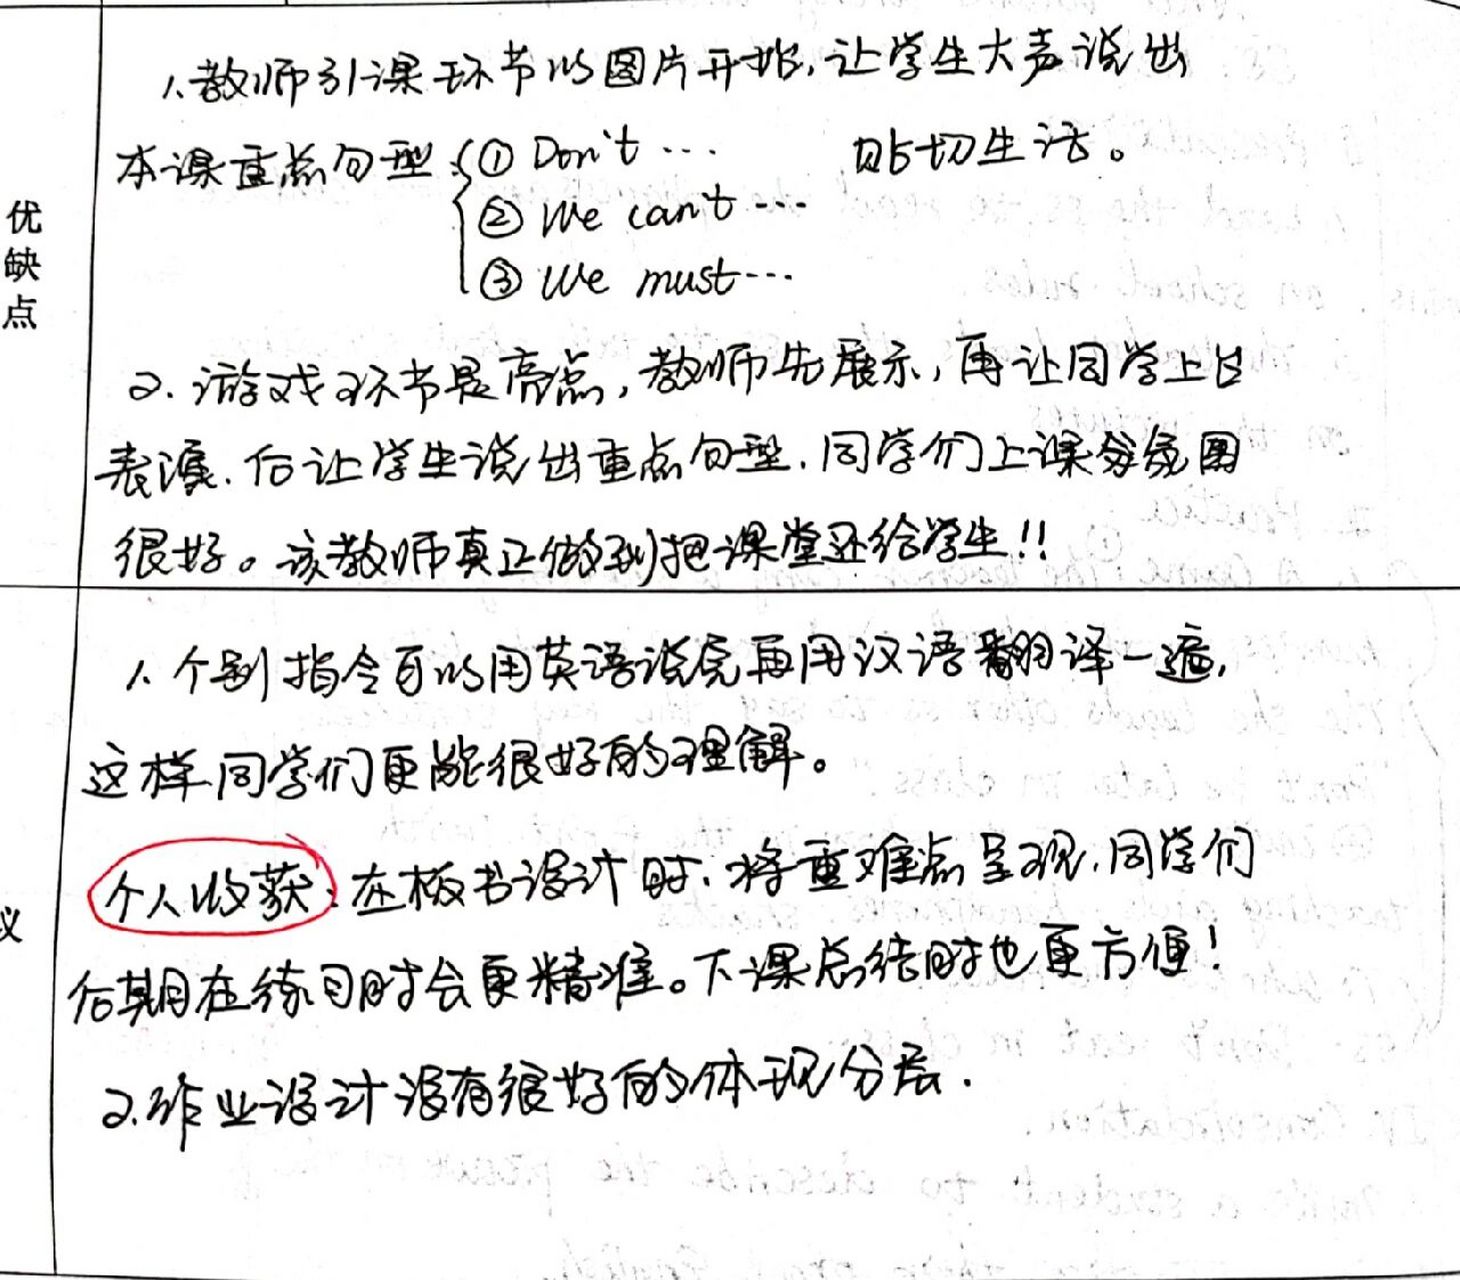 优缺点
1.教师引课环节以图片开始,让学生大声说出
本课重点句型:① Don't … 贴切生活。
② We can't …
③ We must …
2.游戏环节是亮点,教师先展示,再让同学上台
表演.后让学生说出重点句型.同学们上课氛围
很好。该教师真正做到把课堂还给学生!!
议
1.个别指令可以用英语说完再用汉语翻译一遍,
这样同学们更能很好的理解。
个人收获:在板书设计时.将重难点呈现.同学们
后期在练习时会更精准。下课总结时也更方便!
2.作业设计没有很好的体现分层.